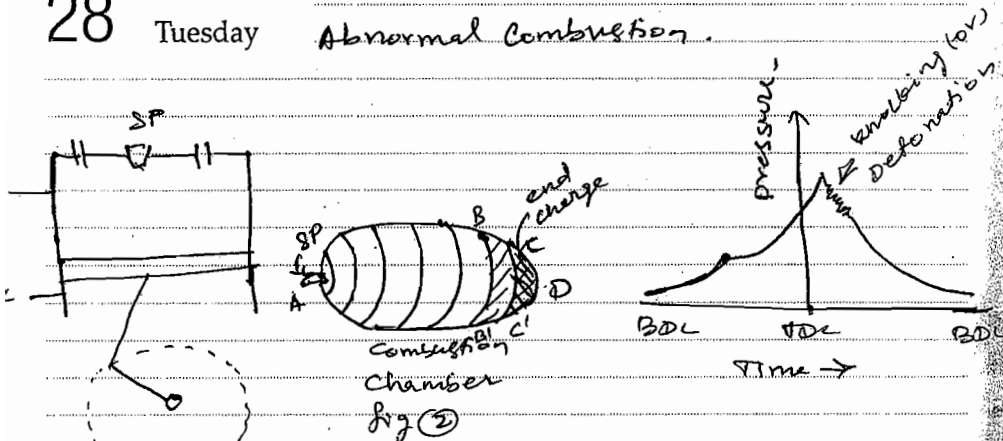 28 Tuesday Abnormal Combustion.
SP
SP
A
B
end
charge
C
D
B'
C'
Combustion
Chamber
fig ②
pressure
knocking (or)
Detonation
BDC
TDC
BDC
Time →